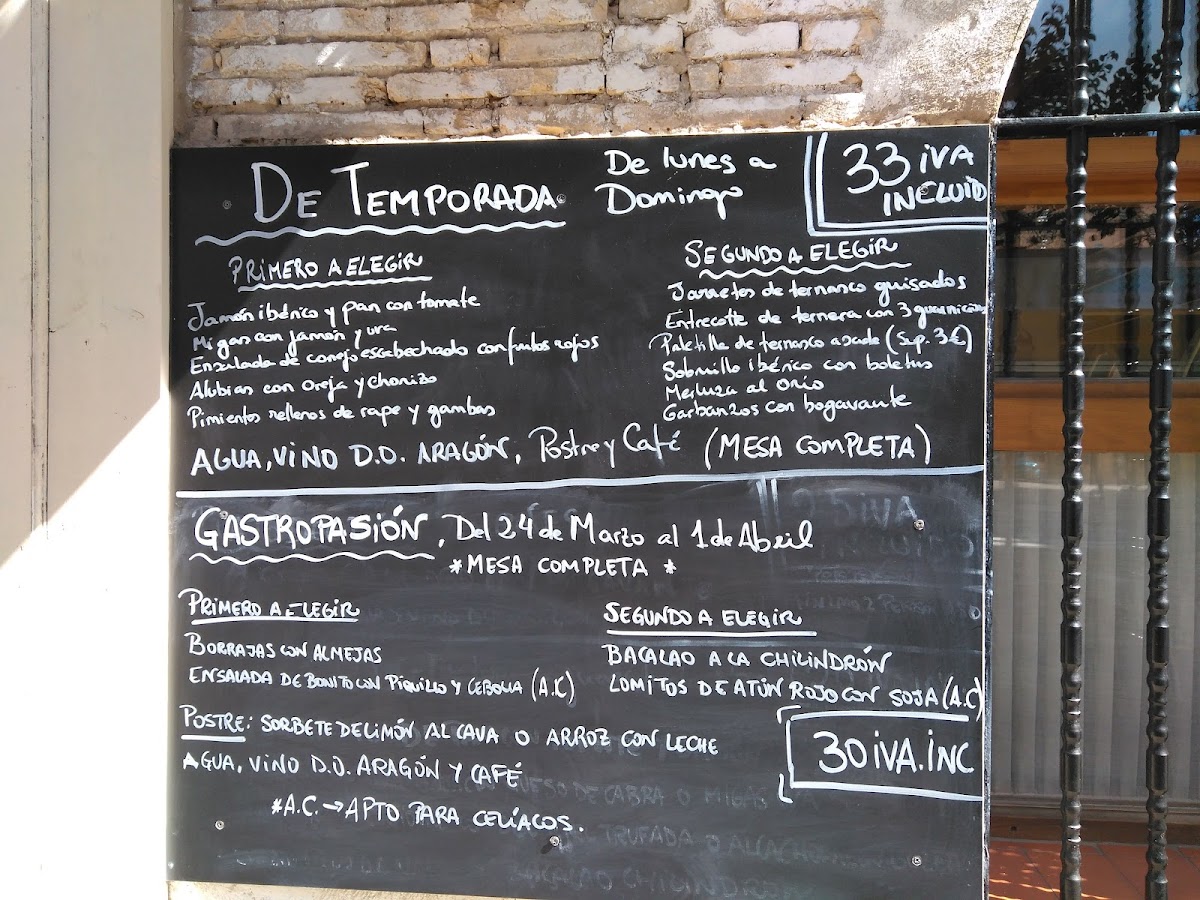 De Temporada
De lunes a
Domingo
33 iva
incluid
Primero a elegir
Jamón ibérico y pan con tomate
Migas con jamón y uva
Ensalada de conejo escabechado con frutos rojos
Alubias con oreja y chorizo
Pimientos rellenos de rape y gambas
Segundo a elegir
Jarretes de ternasco guisados
Entrecotte de ternera con 3 guarniciones
Paletilla de ternasco asada (Sup. 3€)
Solomillo ibérico con boletus
Merluza al Orio
Garbanzos con bogavante
AGUA, VINO D.O. ARAGÓN, Postre y Café (MESA COMPLETA)
GASTROPASIÓN, Del 24 de Marzo al 1 de Abril
*MESA COMPLETA *
PRIMERO A ELEGIR
BORRAJAS CON ALMEJAS
ENSALADA DE BONITO CON PIQUILLO Y CEBOLLA (A.C)
SEGUNDO A ELEGIR
BACALAO A LA CHILINDRÓN
LOMITOS DE ATÚN ROJO CON SOJA (A.C)
POSTRE: SORBETE DE LIMÓN AL CAVA O ARROZ CON LECHE
AGUA, VINO D.O. ARAGÓN Y CAFÉ
30 iVA.iNC
*A.C. → APTO PARA CELÍACOS.